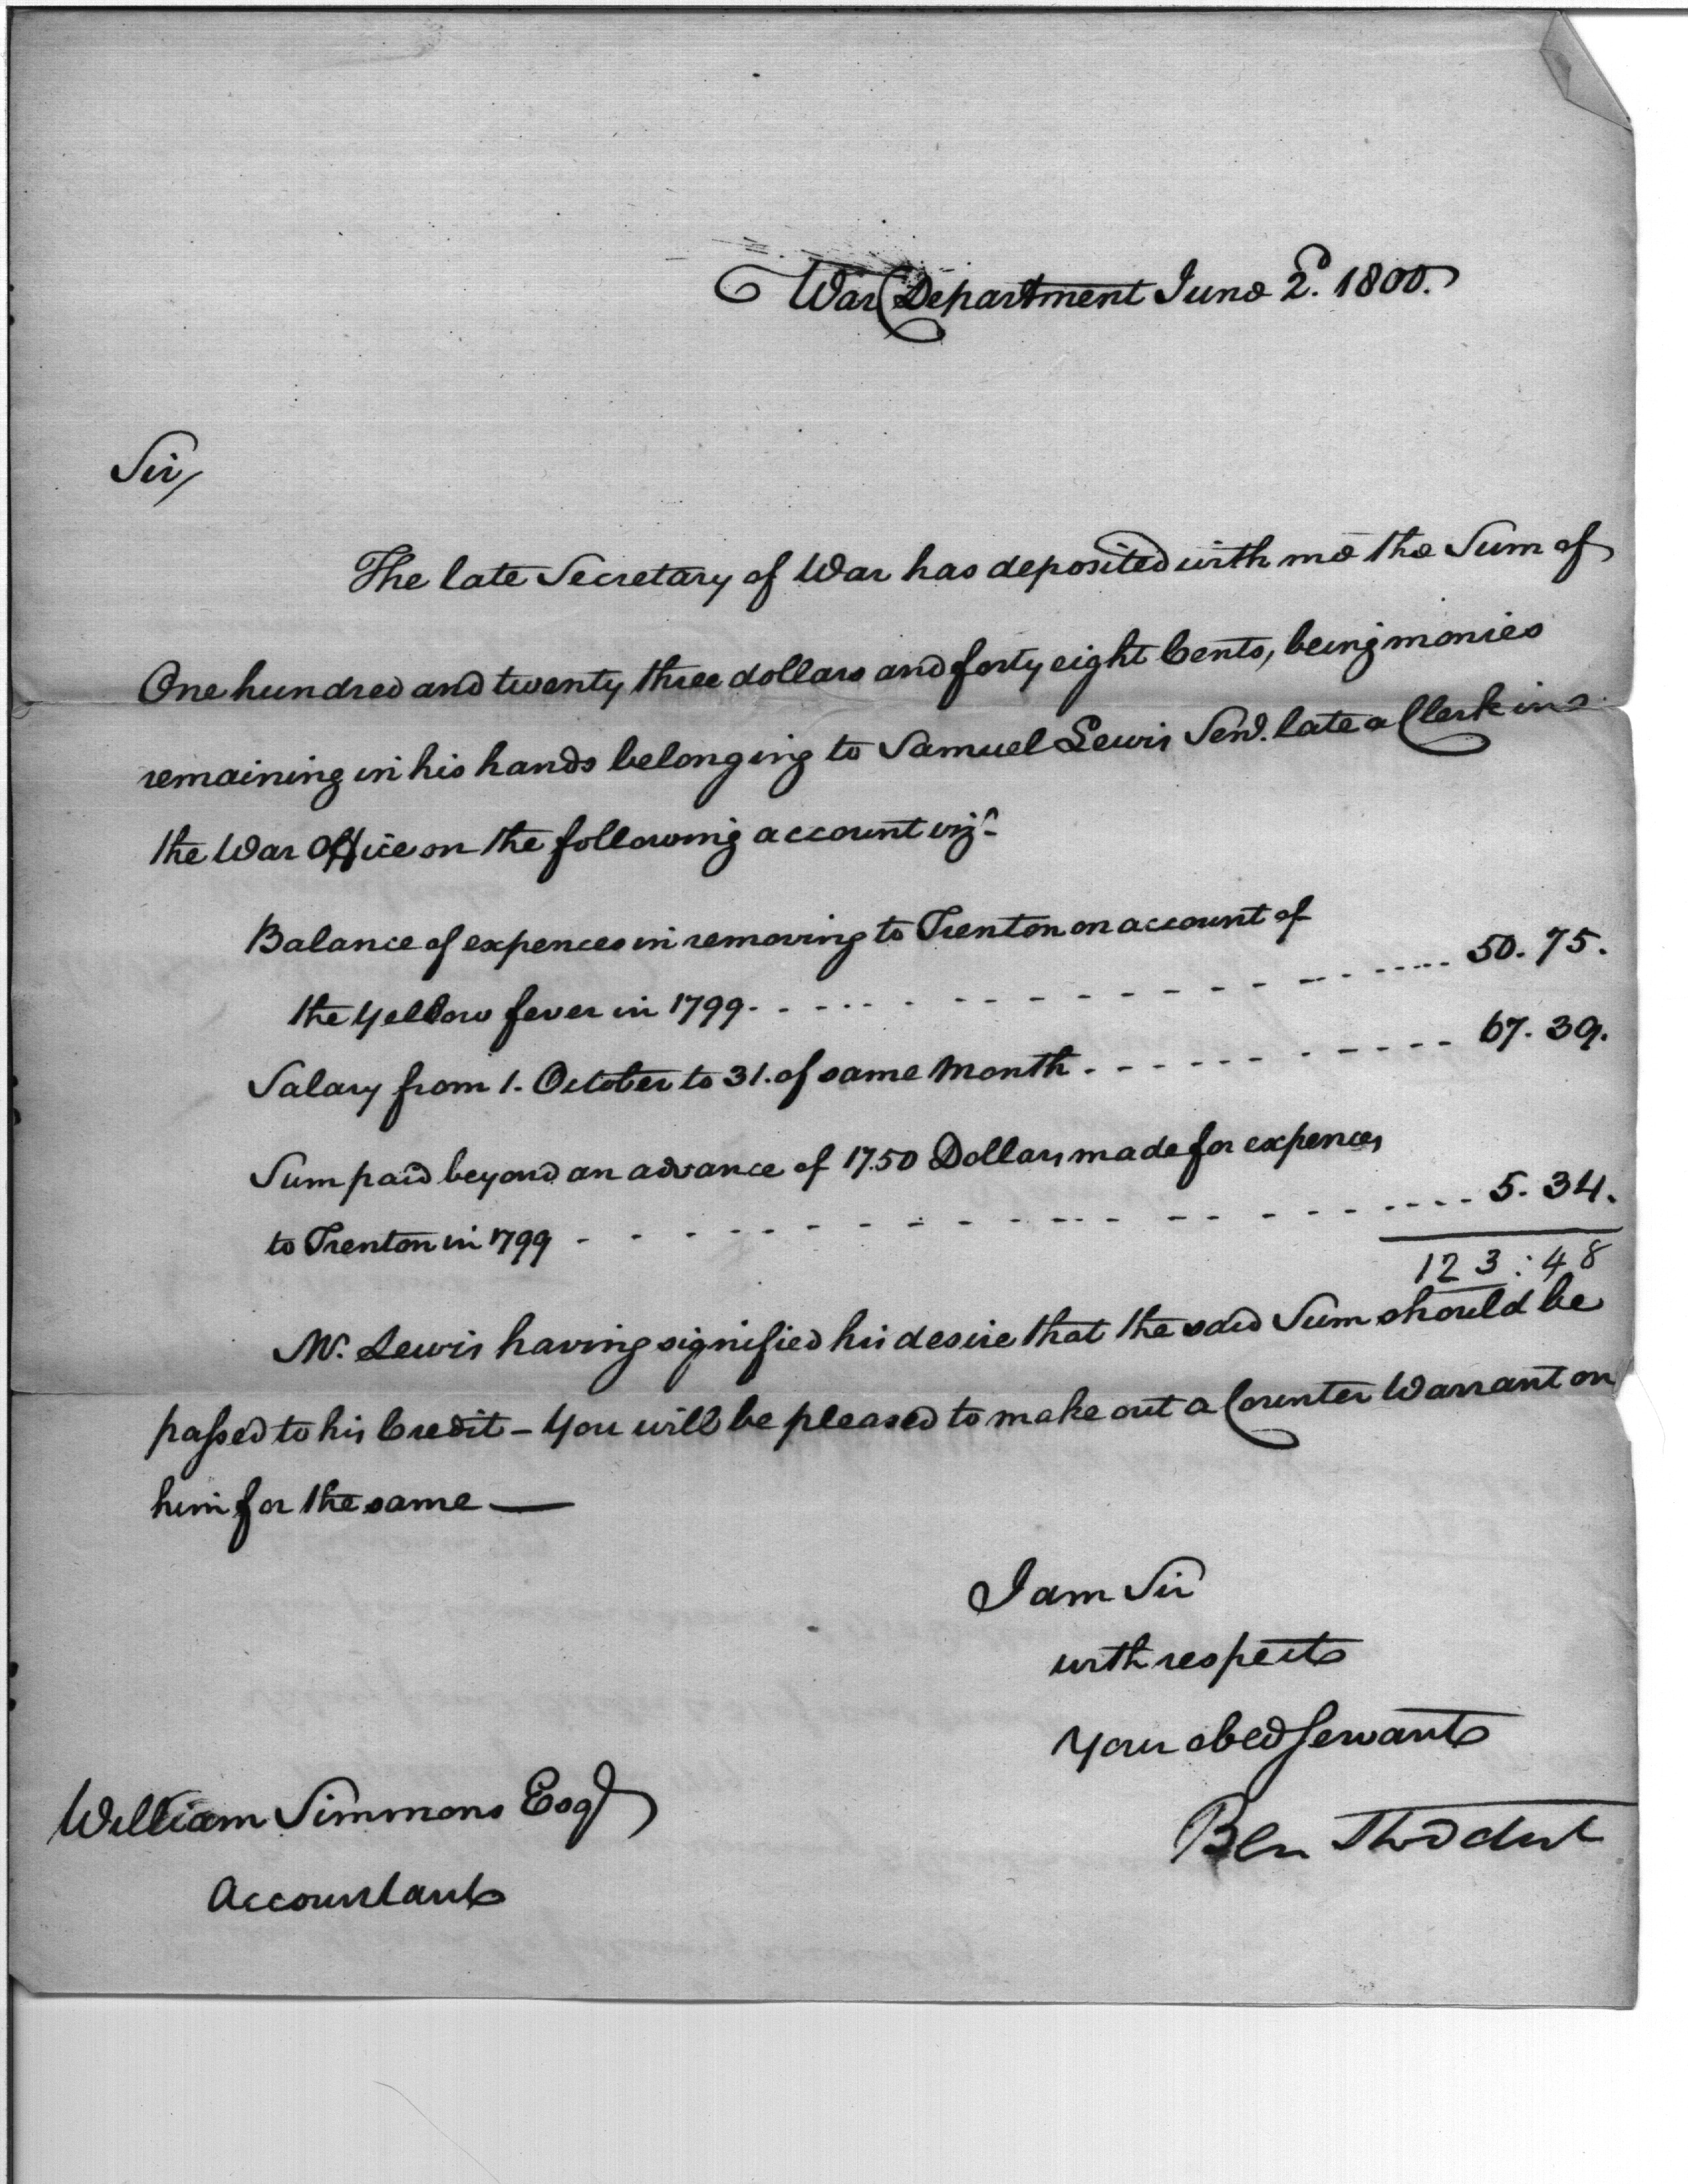 War Department June 2d. 1800.
Sir,
The late Secretary of War has deposited with me the Sum of
One hundred and twenty three dollars and forty eight Cents, being monies
remaining in his hands belonging to Samuel Lewis Senr. late a Clerk in
the War Office on the following account vizt.
Balance of expences in removing to Trenton on account of
the Yellow fever in 1799. 50. 75.
Salary from 1. October to 31. of same Month 67. 39.
Sum paid beyond an advance of 17.50 Dollars made for expences
to Trenton in 1799 5. 34.
123:48
Mr. Lewis having signified his desire that the said Sum should be
passed to his Credit - You will be pleased to make out a Counter Warrant on
him for the same —
I am Sir
with respect
Your obed Servant
Ben Stoddert
William Simmons Esqr
Accountant